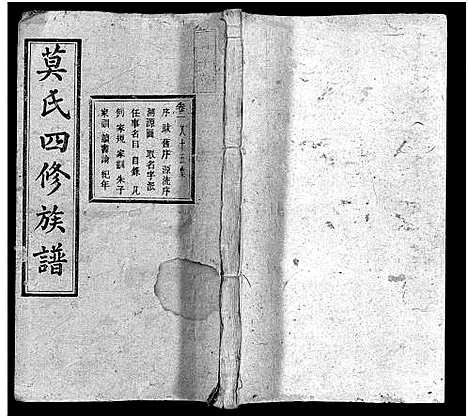 莫氏四修族譜
序 跋 舊序 源流序
溯源圖 取名字派
任事名目 目錄 凡
例 家規 家訓 朱子
家訓 讀書論 紀年